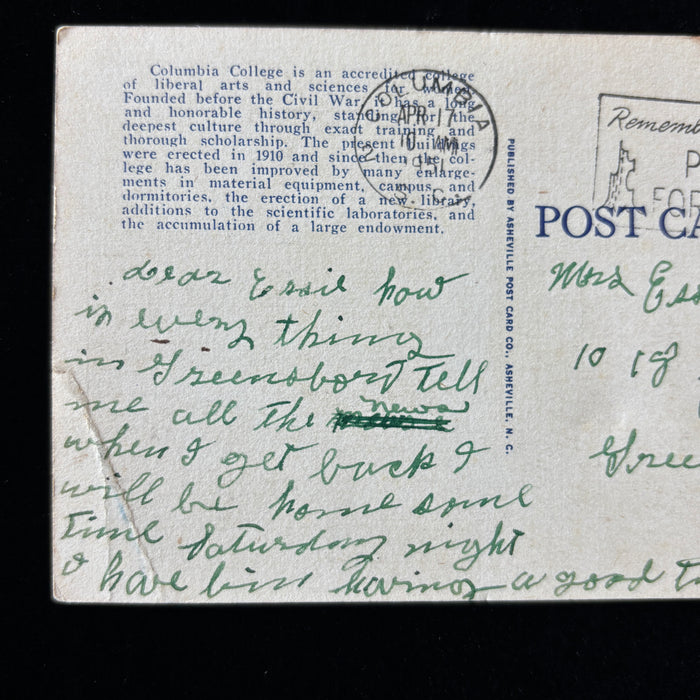 Columbia College is an accredited college
of liberal arts and sciences for women.
Founded before the Civil War, it has a long
and honorable history, standing for the
deepest culture through exact training and
thorough scholarship. The present buildings
were erected in 1910 and since then the col-
lege has been improved by many enlarge-
ments in material equipment, campus, and
dormitories, the erection of a new library,
additions to the scientific laboratories, and
the accumulation of a large endowment.
COLUMBIA
APR 17
10 AM
1941
S. C.
2
PUBLISHED BY ASHEVILLE POST CARD CO., ASHEVILLE, N. C.
Rememb
P
FOR
POST CA
Dear Essie how
is every thing
in Greensboro Tell
me all the news
when I get back I
will be home some
time Saturday night
I have bin having a good t
Mrs Ess
10 18
Gree